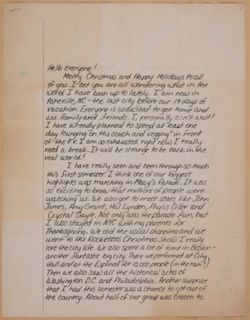 Hello everyone!
Merry Christmas and Happy Holidays to all
of you. I bet you are all wondering what in the
world I have been up to lately. I am now in
Asheville, NC - the last city before our 18 days of
vacation. Everyone is so excited to get home and
see family and friends. I personally can't wait!
I have already planned to spend at least one
day lounging on the couch and vegging in front
of the T.V. I am so exhausted right now I really
need a break. It will be strange to be back in the
real world!
I have really seen and been through so much
this first semester. I think one of our biggest
highlights was marching in Macy's Parade. It was
so exciting to know that millions of people were
watching us. We also got to meet stars like John
James, Amy Grant, Hal Lynden, Phyllis Diller and
Crystal Gayle. Not only was the parade fun, but
I also stayed in NYC with my parents for
Thanksgiving. We did the usual shopping and we
went to the Rockettes Christmas Show. I really
love the city life. We also spent a lot of time in Boston -
another fantastic big city. There we performed at City
Hall and at the
Then we also saw all the historical sites of
Washington D.C. and Philadelphia. Another surprise
that I had this semester was a chance to get out of
the country. About half of our group was chosen to